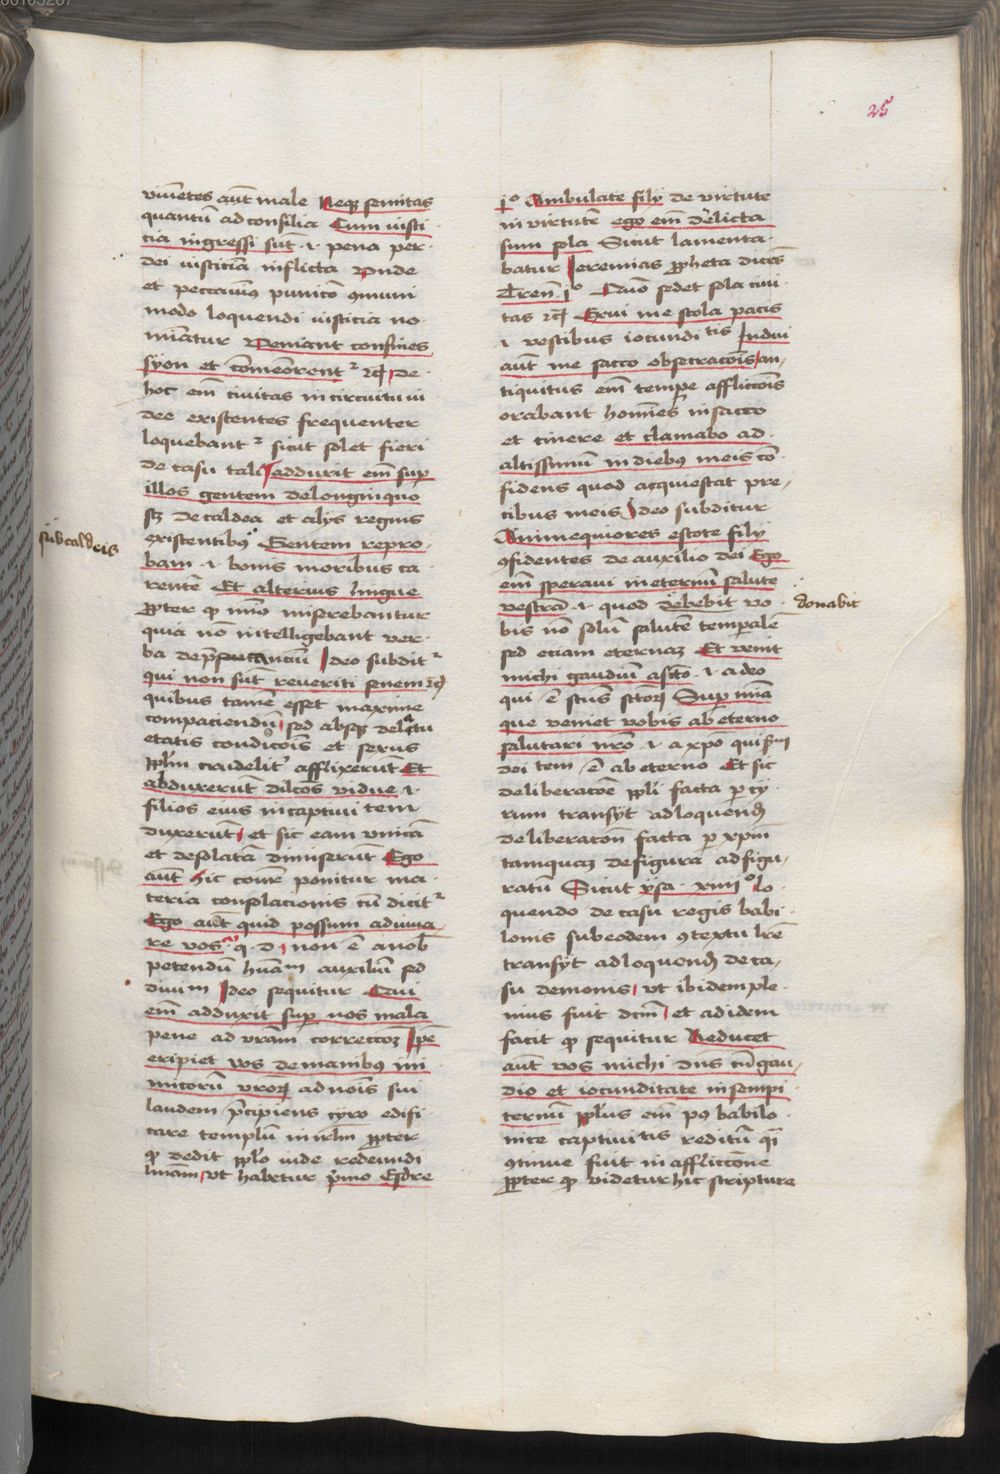 25
viuētes aūt male Neqz semitas
quantū ad consilia Cum iusti
tia ingressi sūt · ⁊ pena per
dei iusticiā inflicta Vnde
et peccatum punitō ꝯmuni
modo loquendi iusticia no
minātur Veniant confines
syon et cōmeōrentʳ ⁊cꝫ de
hoc eīm ciuitas in circuitu iu
dee existentes frequenter
loquebantʳ sicut solet fieri
de casu tali adduxit eīm sup
illos gentem de longinquo
sꝫ de caldea et alijs regnis
sub caldeis
existentibꝰ Gentem repro
bam · ⁊ bonis moribus ca
rentē Et alterius lingue
ꝓpter qꝫ nō miserebantur
quia nō intelligebant ver
ba Ideo subditʳ
qui non sūt reueriti senem ⁊cꝫ
quibus tamē esset maxime
compaciendū sed absqꝫ delctu
etatis condicōis et sexus
pplm crudelitʳ afflixerūt Et
abduxerūt dilcōs vidue ⁊
filios eius in captiui tem
duxerūt et sic eam vnicā
et desolatā dimiserūt Ego
aūt hic conr̄ ponitur ma
teria consolacionis cū dicitʳ
Ego aūt quid possum adiuua
re vos · q · d · non ē a nob̄
petendū hūam auxiliū sed
diuim Ideo sequitur Qui
eīm adduxit sup vos mala
pene ad vrām correccoꝫ ipe
eripiet vos de manibꝰ ini
micorū vroꝝ ad nōis sui
laudem p̄cipiens cyro edifi
care templū in irlm ꝓpter
qꝫ dedit pplo inde redeundi
lnīam vt habetur p̄mo Esdre
jº Ambulate filij de virtute
in virtutē ego eīm derelicta
sum sola Sicut lamenta
batur Jeremias ꝓpheta dices
Tren̄ · jº Quō sedet sola ciui
tas ⁊cꝫ Exui me stola pacis
⁊ vestibus iocundi tis Indui
aūt me sacco obsecracōis an
tiquitus eīm tempe affliccōis
orabant homīes in sacco
et cinere et clamabo ad
altissimū in diebꝰ meis cō
fidens quod acquiescat pre
cibus meis Ideo subditur
Animequiores estote filij
ꝯfidentes de auxilio dei Ego
eīm speraui in eternū salutē
vestrā · ⁊ quod debebit vo
donabit
bis nō solū salutē temporale
sed etiam eternaꝫ Et venit
michi gaudiū a scō · ⁊ a deo
qui ē scūs scōꝝ Sup mīa
que veniet vobis ab eterno
salutari nrō · ⁊ a xpō qui
dei tem ē ab eterno Et sic
deliberacōe ppli facta p cy
rum transijt ad loquendꝫ
deliberatōn facta p xpm
tamquaꝫ de figura ad figu
ratū Sicut ysa · xiiij º lo
quendo de casu regis babi
lonis sub eodem ꝯtextu lrē
transijt ad loquendꝫ de ca
su demonis vt ibidem ple
nius fuit dcm et ad idem
facit qꝫ sequitur Reducet
aūt vos michi dns cū gau
dio et iocunditate in sempi
ternū pplus eīm pꝰ babilo
nice captiui tis reditū qi
ꝯtinue fuit in affliccōne
ꝓpter qꝫ videtur hic scripture